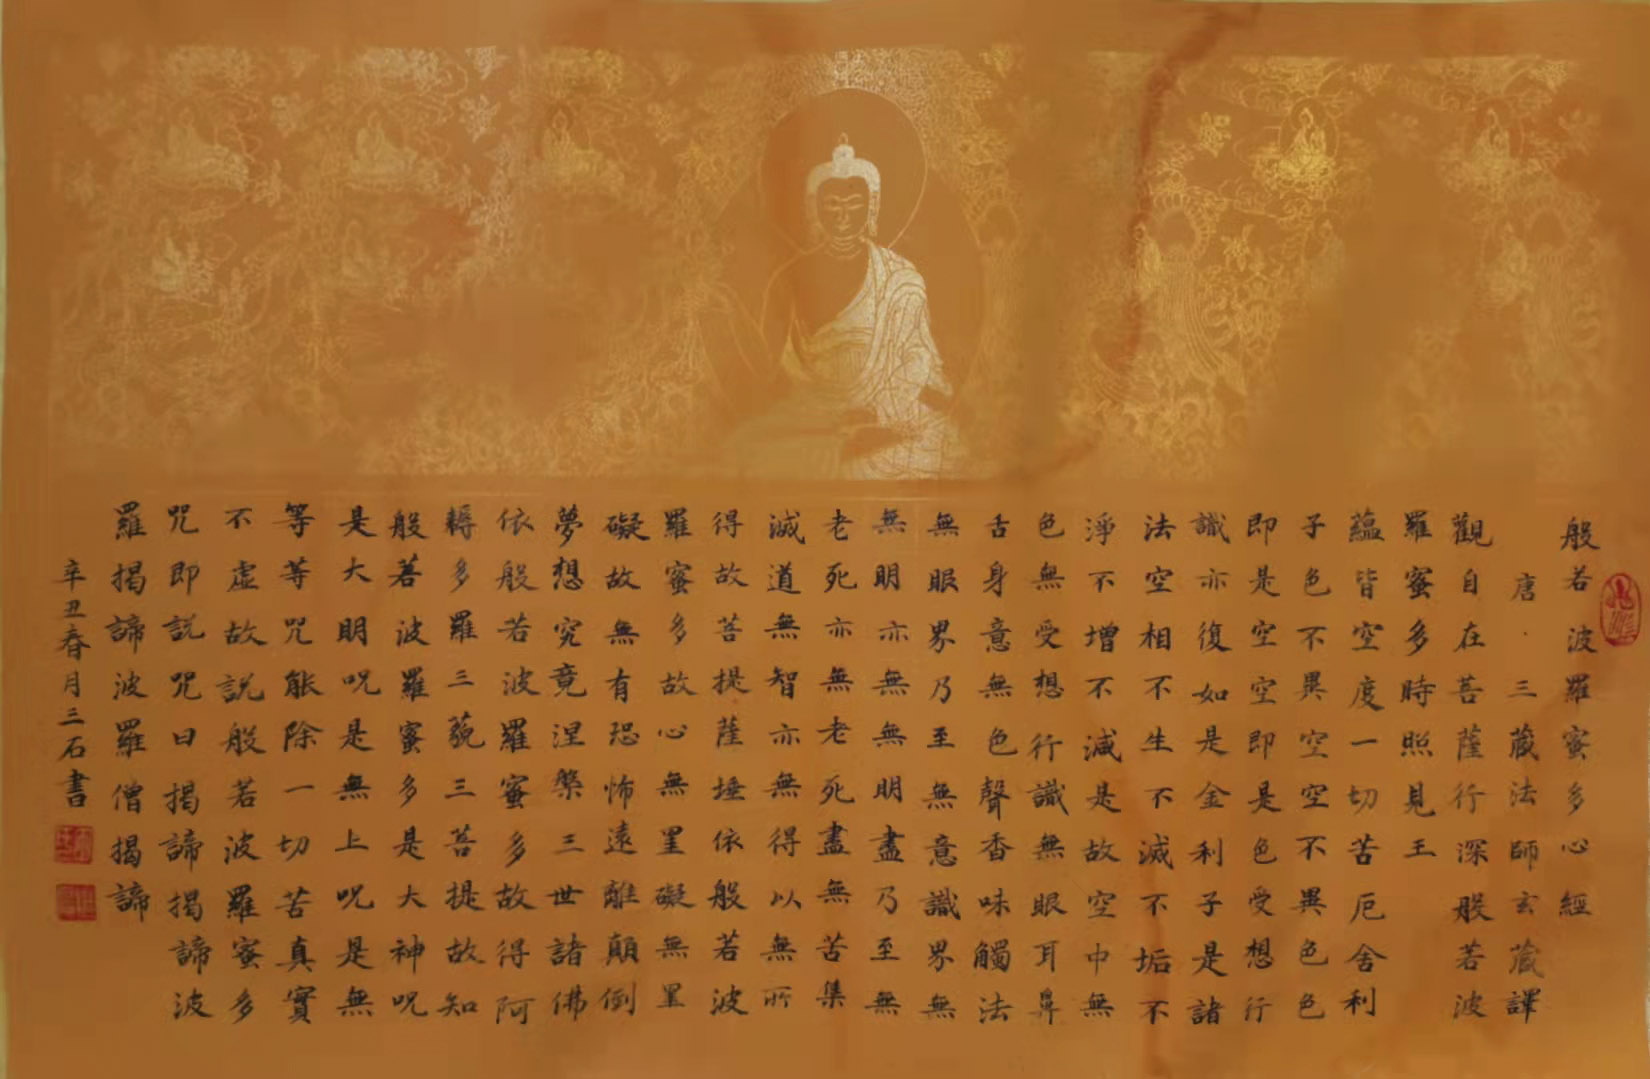 般若波羅蜜多心經
唐·三藏法師玄藏譯
觀自在菩薩行深般若波
羅蜜多時照見五
蘊皆空度一切苦厄舍利
子色不異空空不異色色
即是空空即是色受想行
識亦復如是舍利子是諸
法空相不生不滅不垢不
淨不增不減是故空中無
色無受想行識無眼耳鼻
舌身意無色聲香味觸法
無眼界乃至無意識界無
無明亦無無明盡乃至無
老死亦無老死盡無苦集
滅道無智亦無得以無所
得故菩提薩埵依般若波
羅蜜多故心無罣礙無罣
礙故無有恐怖遠離顛倒
夢想究竟涅槃三世諸佛
依般若波羅蜜多故得阿
耨多羅三藐三菩提故知
般若波羅蜜多是大神呪
是大明呪是無上呪是無
等等咒能除一切苦真實
不虛故説般若波羅蜜多
咒即説咒曰揭諦揭諦波
羅揭諦波羅僧揭諦
辛丑春月三石書